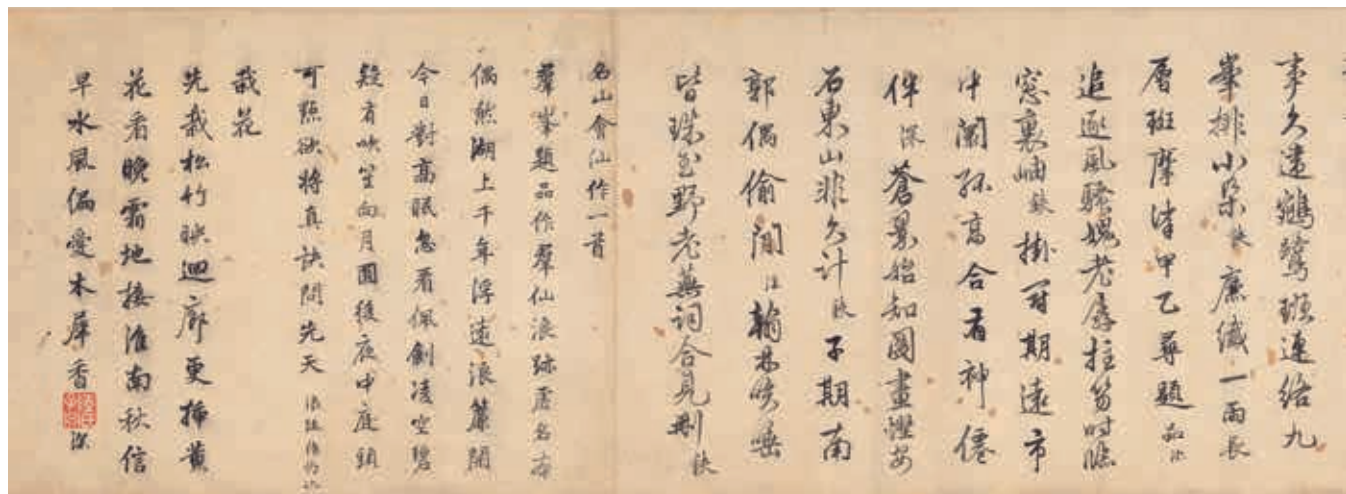 事久遠鶴鷺班連絡九
峯排小朵 廉纖一雨長
層斑摩 甲乙尋題
追逐風騷媿老孱拄笏時臨
窓裏岫 掛 何期遠市
中闤 高合看神僊
伴 深 蒼 始知圖畫慳安
石東山非久計 子期南
郭偶偷閒 翰林咳唾
皆珠玉野老蕪詞合見刪
名山會仙作一首
羣峯題品作羣仙浪跡虛名亦
偶然湖上千年浮遠浪簾開
今日對高眠忽看佩劍凌空碧
疑有吹笙向月圓後夜中庭頭
可點欲將真訣問先天
栽花
先栽松竹映迴廊更插黃
花看晚霜地接淮南秋信
早水風偏愛木犀香 深